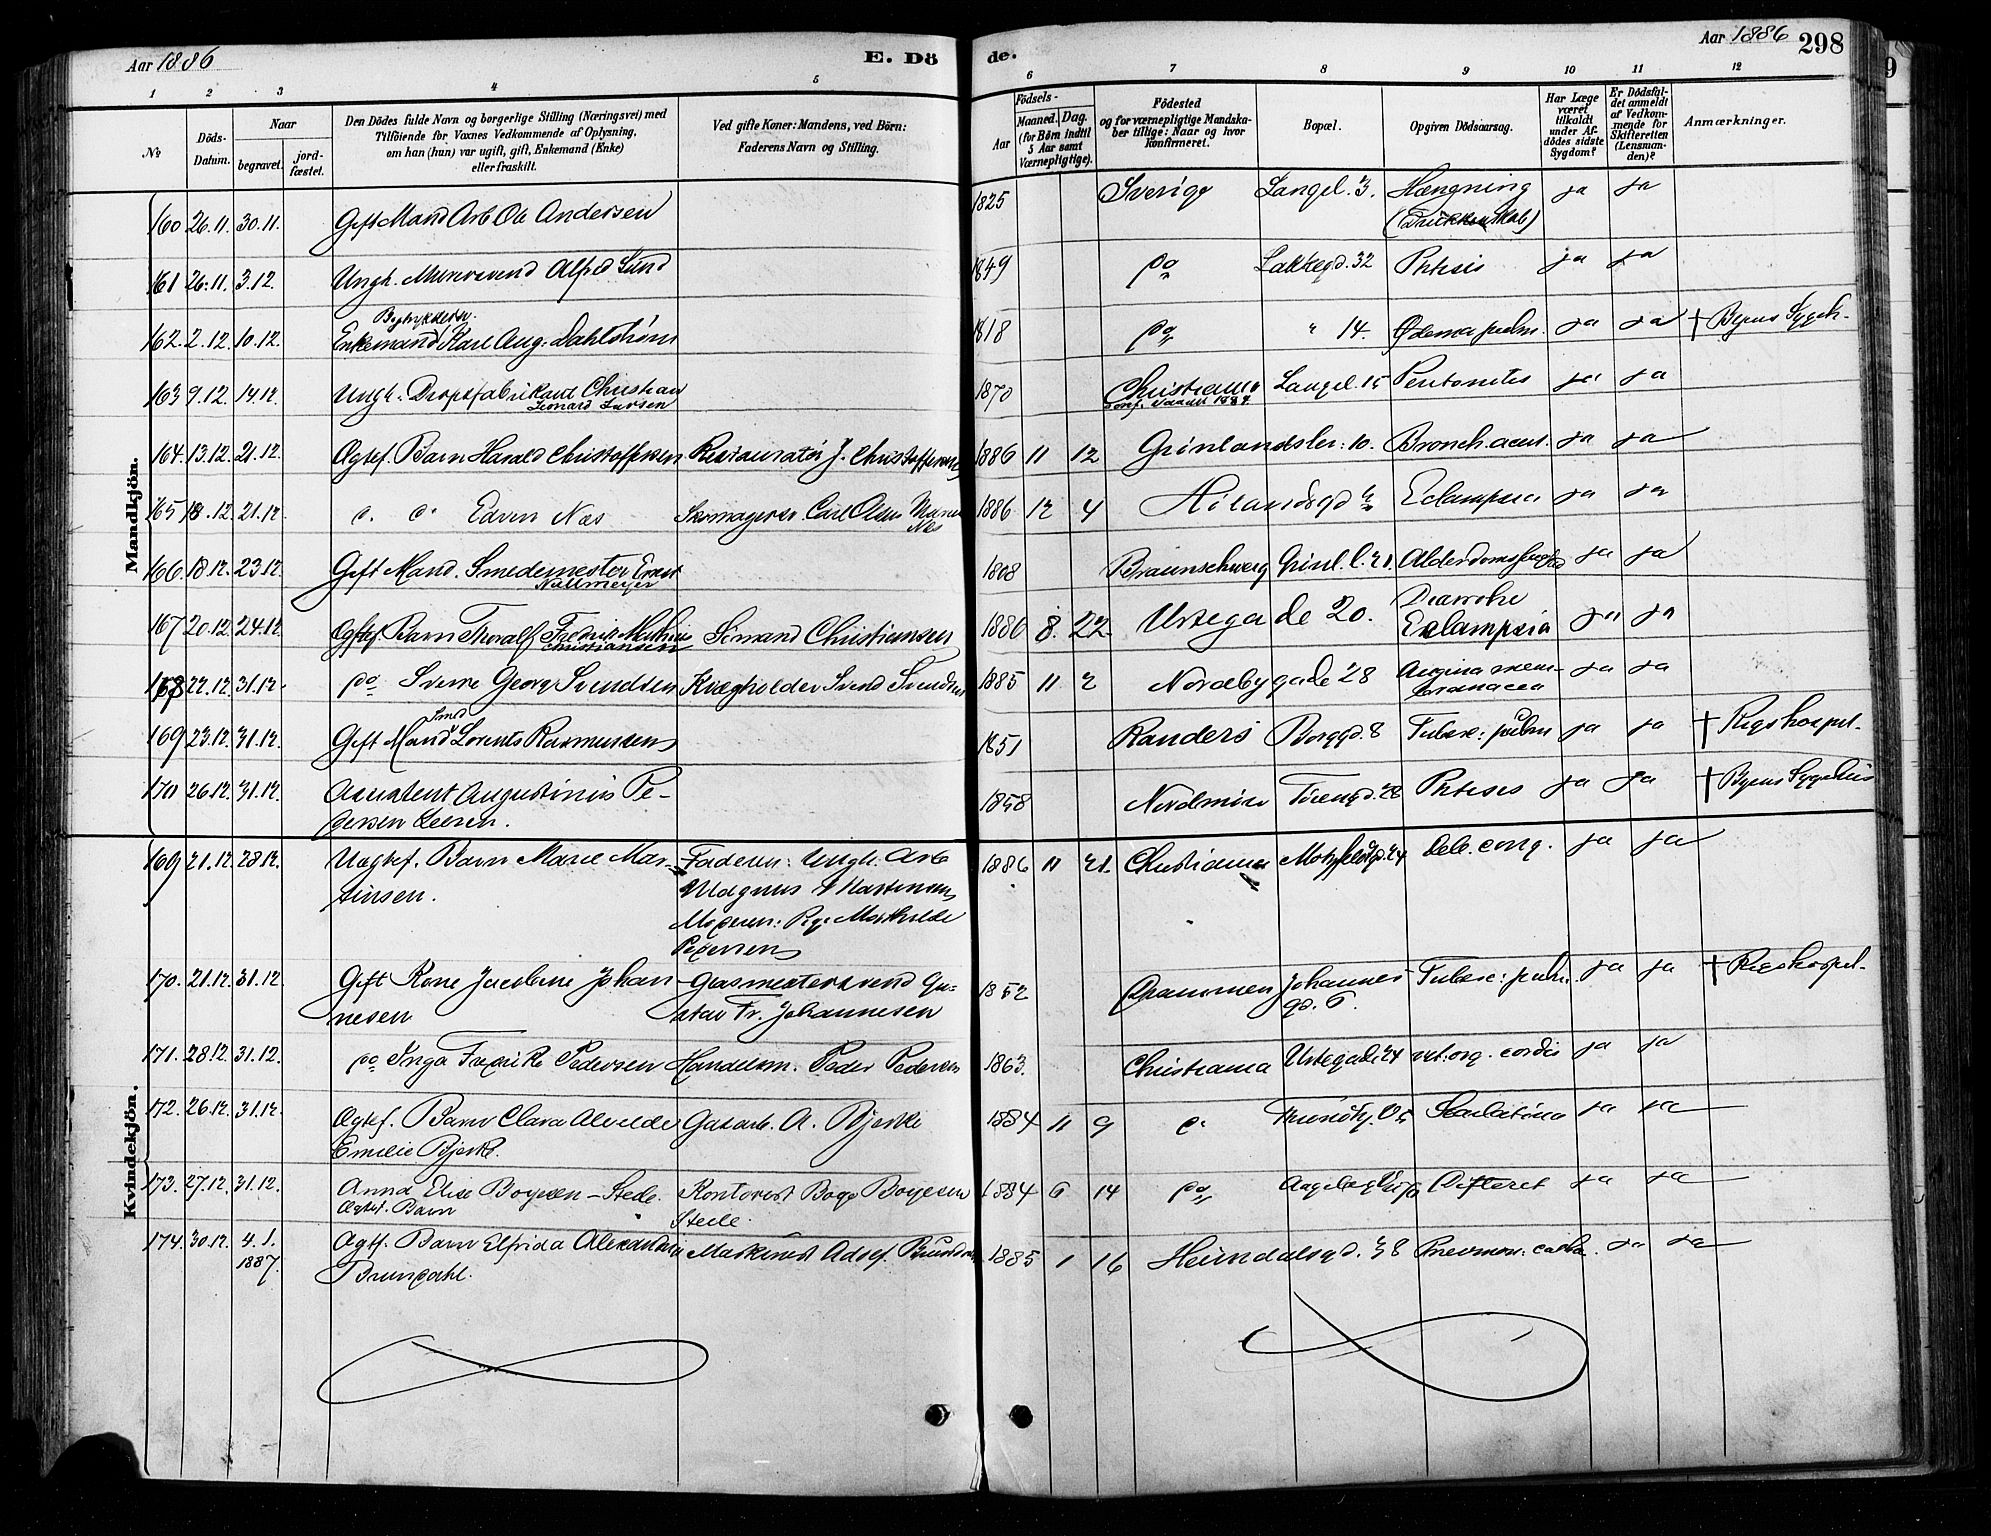 Aar 1886 E. Dö
de. Aar 1886 298
1 2 3 4 5 6 7 8 9 10 11 12
No
Döds-
Datum.
Naar
begravet.
jord-
fæstet.
Den Dödes fulde Navn og borgerlige Stilling (Næringsvei) med
Tilföiende for Voxnes Vedkommende af Oplysning,
om han (hun) var ugift, gift, Enkemand (Enke)
eller fraskilt.
Ved gifte Koner: Mandens, ved Børn:
Faderens Navn og Stilling.
Födsels-
Aar
Maaned. Dag.
(for Børn indtil
5 Aar samt
Værnepligtige).
Födested
og for værnepligtige Mandska-
ber tillige: Naar og hvor
konfirmeret.
Bopæl.
Opgiven Dödsaarsag.
Har Læge
været
tilkaldt
under Af-
dödes sidste
Sygdom?
Er Dödsfal-
det anmeldt
af Vedkom-
mende for
Skifteretten
(Lensman-
den)?
Anmærkninger.
Mandkjön.
160 26.11. 30.11. Gift Mand Arb Ole Andersen 1825 Sverige Langel. 3. Hængning ja ja
(Drikkenskab)
161 26.11. 3.12. Ungk. Murersvend Alfred Lund 1849 do Lakkegd. 32 Phtisis ja ja
Bogtrykkersv.
162. 2.12. 10.12. Enkemand Karl Aug. Dahlstrøm 1818 do " 14. Ødema pulm. ja ja † Byens Sygeh.
163 9.12. 14.12. Ungk. Dropsfabrikant Christian 1870 Christiania Langel. 15 Peritonitis ja ja
Leonard Larsen
164. 13.12. 21.12. Ægtef. Barn Harald Christoffersen Restauratør J. Christoffersen 1886 11 12 Grønlandsler. 10. Bronch. acut. ja ja
165 18.12. 21.12. do. do. Edvin Næs Skomagersv. Carl Olsen 1886 12 4 Eclampsia ja ja
Næs
166. 18.12. 23.12. Gift Mand. Smedemester Ernst 1808 Braunschweig Grønl. l. 21. Alderdomssvaghed ja ja
Nallmeyer
167 20.12. 24.12. Ægtef. Barn Thoralf Fredrik Mathias Sømand Christiansen 1880 8. 22. Urtegade 20. Diarrohe ja ja
Christiansen Eclampsia
168 22.12. 31.12. do Sverre Georg Svendsen Kvægholder Svend Svendsen 1885 11 2 Nordbygade 28 Angina mem- ja ja
branacea
Smed
169 23.12. 31.12. Gift Mand Lorents Rasmussen 1851 Randers Borggd. 8 Tuberc. pulm ja ja † Rigshospit.
170 26.12. 31.12. Assistent Augustinius Pe- 1858 Nordmøre 28 Phtisis ja ja † Byens Sygehus
dersen
Kvindekjön.
169 21.12. 28.12. Uægtef. Barn Marie Mar- Faderen: Ungk. Arb 1886 11 21. Christiania Motzfeldtgd. 24 Deb. cong. ja ja
tinsen. Magnus Martinsen
Moderen: Pige Mathilde
Pedersen
170. 21.12. 31.12. Gift Kone Jacobine Johan- Glasmestersvend Gu- 1852 Drammen Johannes- Tuberc. pulm. ja ja † Rigshospit.
nesen stav Fr. Johannesen gd. 6.
171. 28.12. 31.12. do Inga Fredrikke Pedersen Handelsm. Peder Pedersen 1863. Christiania Urtegade 24 vit. org. cordis ja ja
172. 26.12. 31.12. Ægtef. Barn Clara Alvilde Gasarb. A. Bjerke 1884 11 9 do Scarlatina ja ja
Emilie Bjerke.
173. 27.12. 31.12. Anna Elise Boyesen-Stede. Kontorist Boye Boyesen 1884 6 14 do Difterit ja ja
Ægtef. Barn Stede.
174. 30.12. 4.1. Ægtf. Barn Elfrida Alexandra Maskinist Adolf Brundahl 1885 1 16 Heimdalsgd. 38 Pneumon. cath. ja ja
1887. Brundahl.